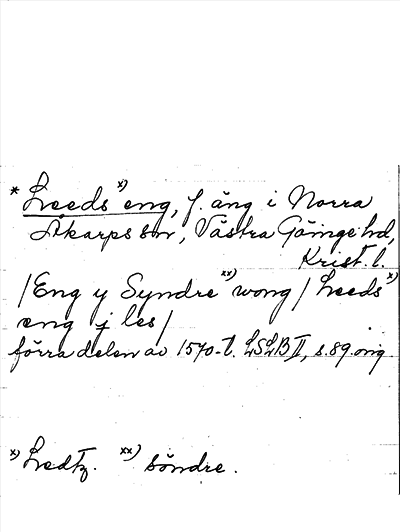 * Leeds x) eng, f. äng i Norra
Åkarps sn, Västra Göinge hd,
Krist. l.
/Eng y Syndre xx) wong / Leeds x)
eng j les/
förra delen av 1570-t. LSLB II, s. 89. orig
x) Ledtz. xx) söndre.